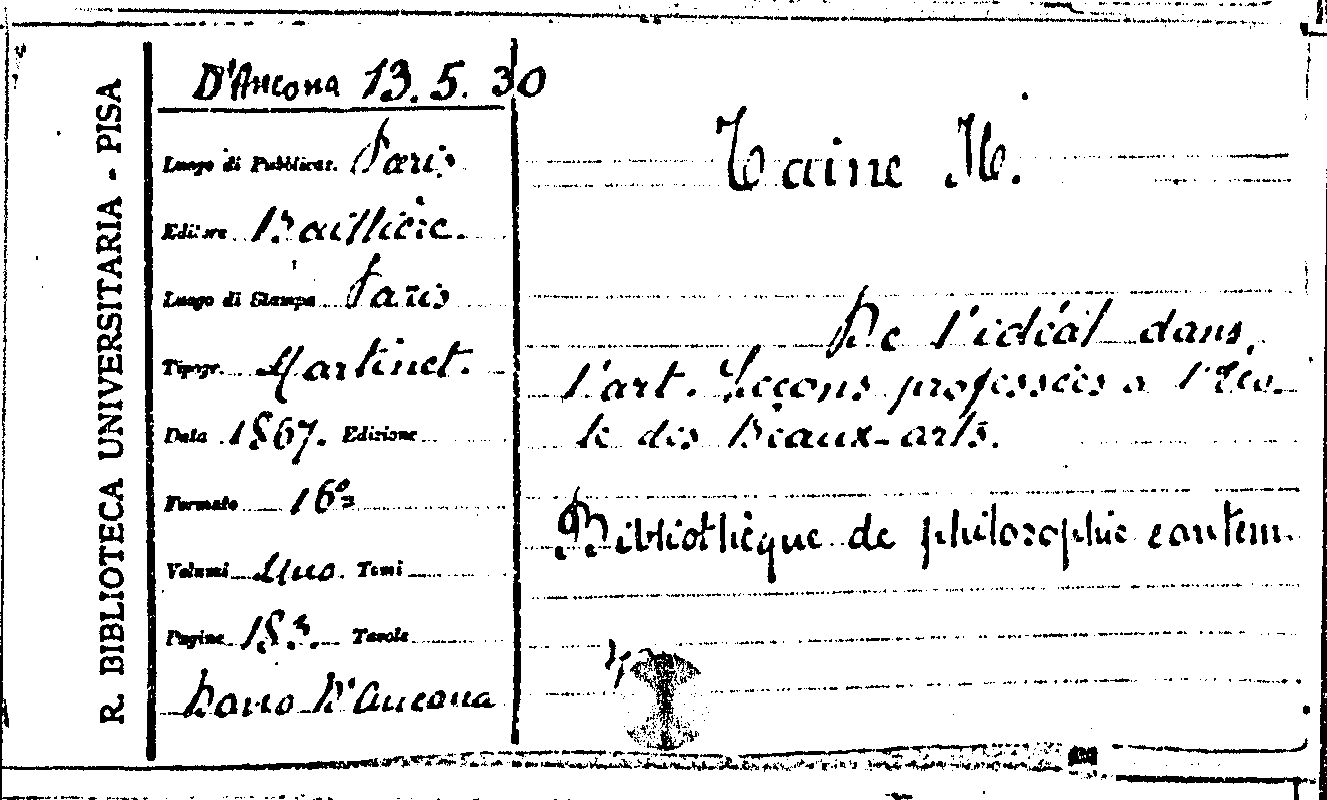 R. BIBLIOTECA UNIVERSITARIA - PISA
D'Ancona 13. 5. 30
Luogo di Pubblicaz. Paris
Editore Baillière.
Luogo di Stampa Paris
Tipogr. Martinet.
Data 1867. Edizione
Formato 16º
Volumi Uno. Tomi
Pagine 183. Tavole
Dono D'Ancona
Taine H.
De l'idéal dans
l'art. Leçons professées à l'Éco-
le des Beaux-arts.
Bibliothèque de philosophie contem.